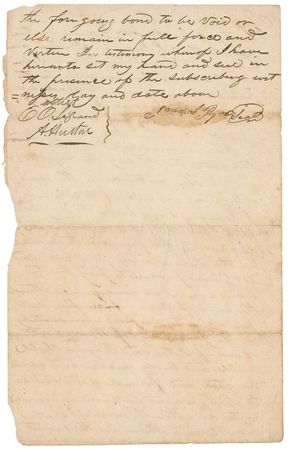 the fore going bond to be Void or
else remain in full force and
Vertue In testimony whereof I have
hereunto set my hand and seal in
the presence of the subscribing wit
=nesses day and date above
Attest
Seal
A. Hutton